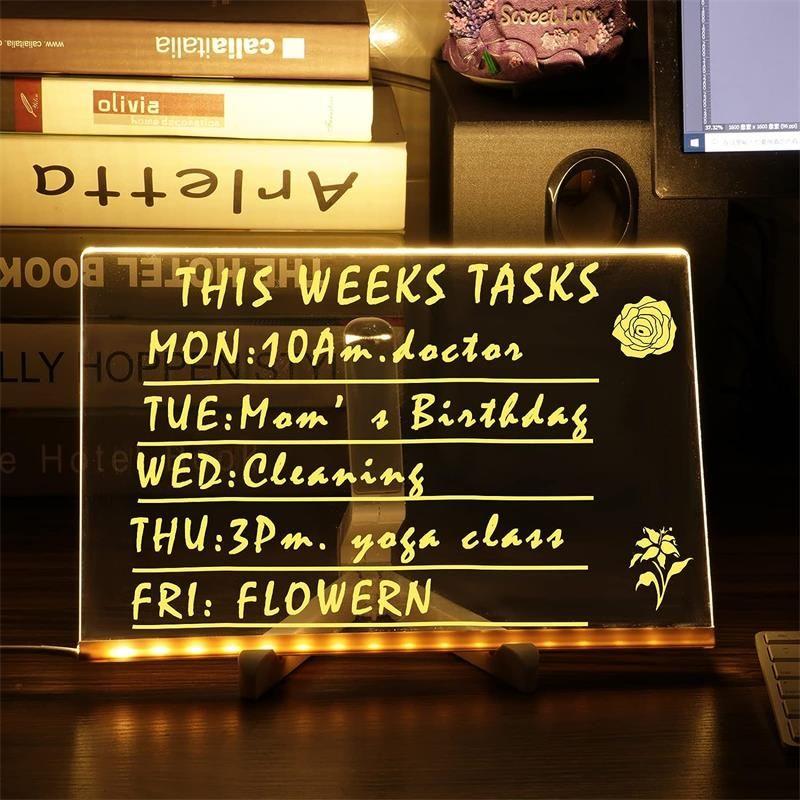 www.caliaitalia
caliaitalia
olivia
home decoration
Arletta
THE HOTEL BOOK
LLY HOPPEN STYL
e Hotel Book
Sweet Love
37.32%
THIS WEEKS TASKS
MON:10Am.doctor
TUE:Mom's Birthday
WED:Cleaning
THU:3Pm. yoga class
FRI: FLOWERN